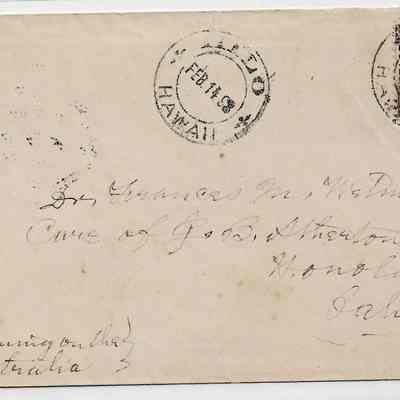 HILO
FEB 14 98
HAWAII
HAW
Dr. Frances M. Wetm
Care of J. B. Atherton
Honol
Oah
ming on the
stralia